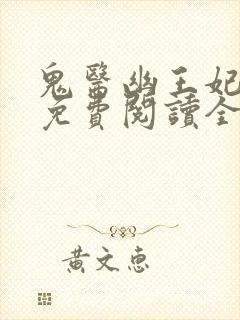 鬼醫幽王妃
免費閱讀全
黃文惠